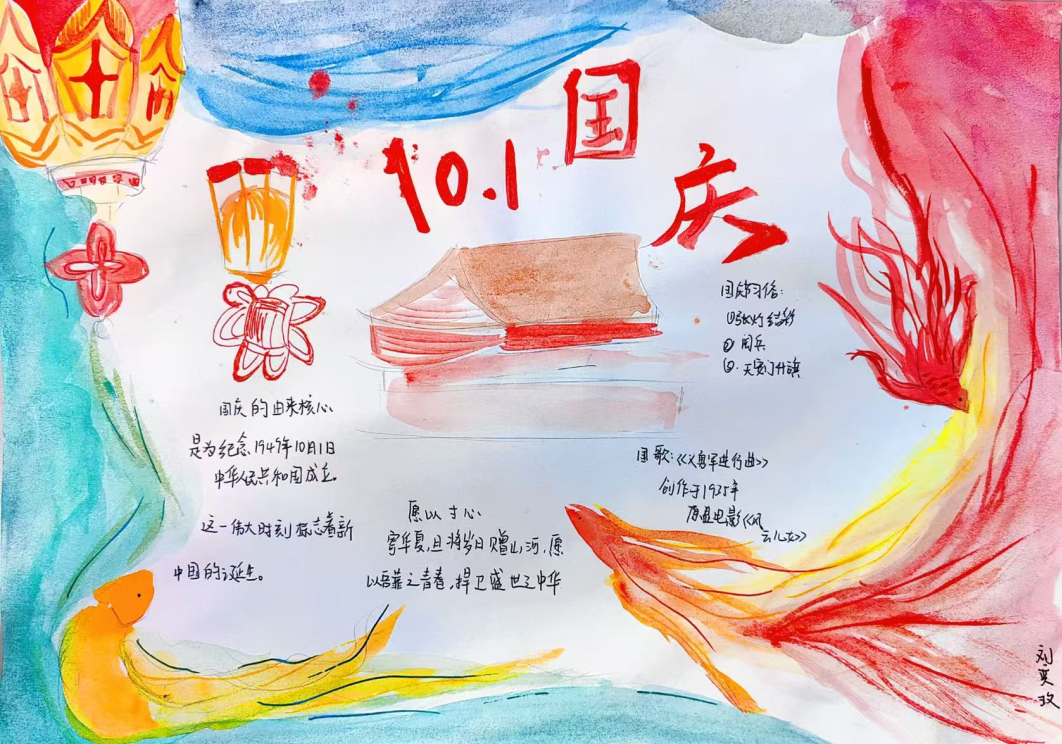 10.1 国庆
国庆节习俗:
①张灯结彩
② 阅兵
③.天安门升旗
国庆的由来核心
是为纪念1949年10月1日
中华人民共和国成立。
这一伟大时刻标志着新
中国的诞生。
愿以寸心
寄华夏,且将岁月赠山河,愿
以吾辈之青春,捍卫盛世之中华
国歌:《义勇军进行曲》
创作于1935年
原是电影《风
云儿女》
刘奕孜